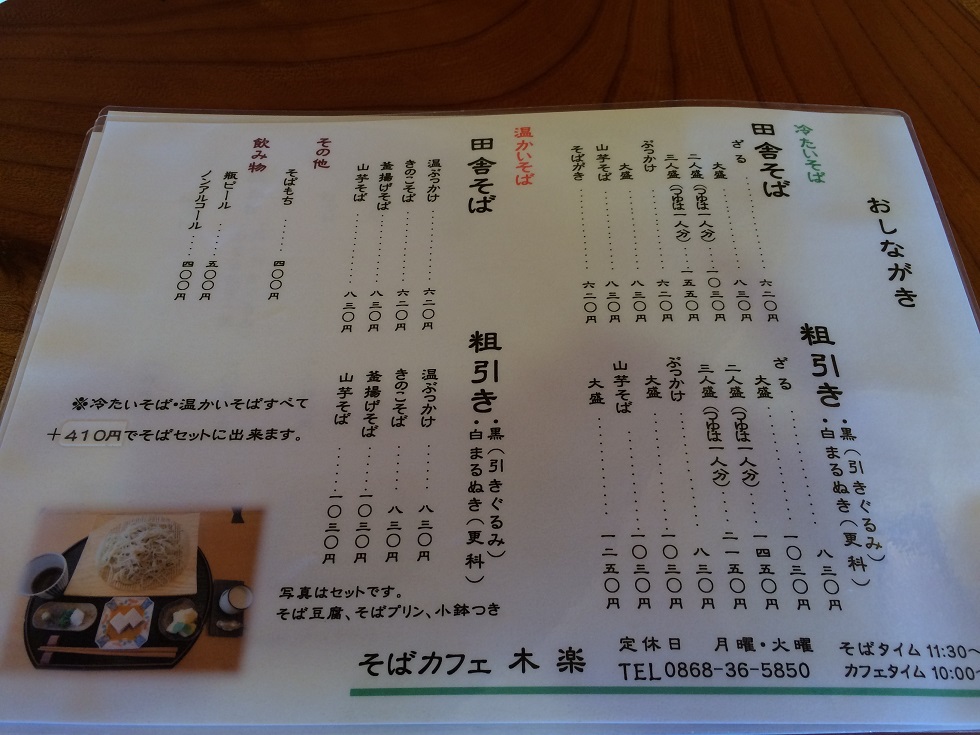 おしながき
冷たいそば
田舎そば
ざる……………六二〇円
大盛……………八三〇円
二人盛(つゆは一人分)…一〇三〇円
三人盛(つゆは一人分)…一五五〇円
ぶっかけ……………六二〇円
大盛……………八三〇円
山芋そば……………八三〇円
そばがき……………六二〇円
粗引き
・黒(引きぐるみ)
・白まるぬき(更科)
ざる……………八三〇円
大盛……………一〇三〇円
二人盛(つゆは一人分)…一四五〇円
三人盛(つゆは一人分)…二一五〇円
ぶっかけ……………八三〇円
大盛……………一〇三〇円
山芋そば……………一〇三〇円
大盛……………一二五〇円
温かいそば
田舎そば
温ぶっかけ………六二〇円
きのこそば………六二〇円
釜揚げそば………八三〇円
山芋そば………八三〇円
粗引き
・黒(引きぐるみ)
・白まるぬき(更科)
温ぶっかけ……八三〇円
きのこそば……八三〇円
釜揚げそば……一〇三〇円
山芋そば……一〇三〇円
その他
そばもち……四〇〇円
飲み物
瓶ビール……五〇〇円
ノンアルコール……四〇〇円
※冷たいそば・温かいそばすべて
＋410円でそばセットに出来ます。
写真はセットです。
そば豆腐、そばプリン、小鉢つき
そばカフェ 木楽
定休日 月曜・火曜
TEL0868-36-5850
そばタイム 11:30～
カフェタイム 10:00～